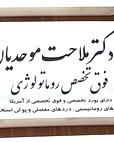 دکتر ملاحت موحدیان
فوق تخصص روماتولوژی
دارای بورد تخصصی و فوق تخصصی از آمریکا
های روماتیسمی، دردهای مفصلی و پوکی استخ